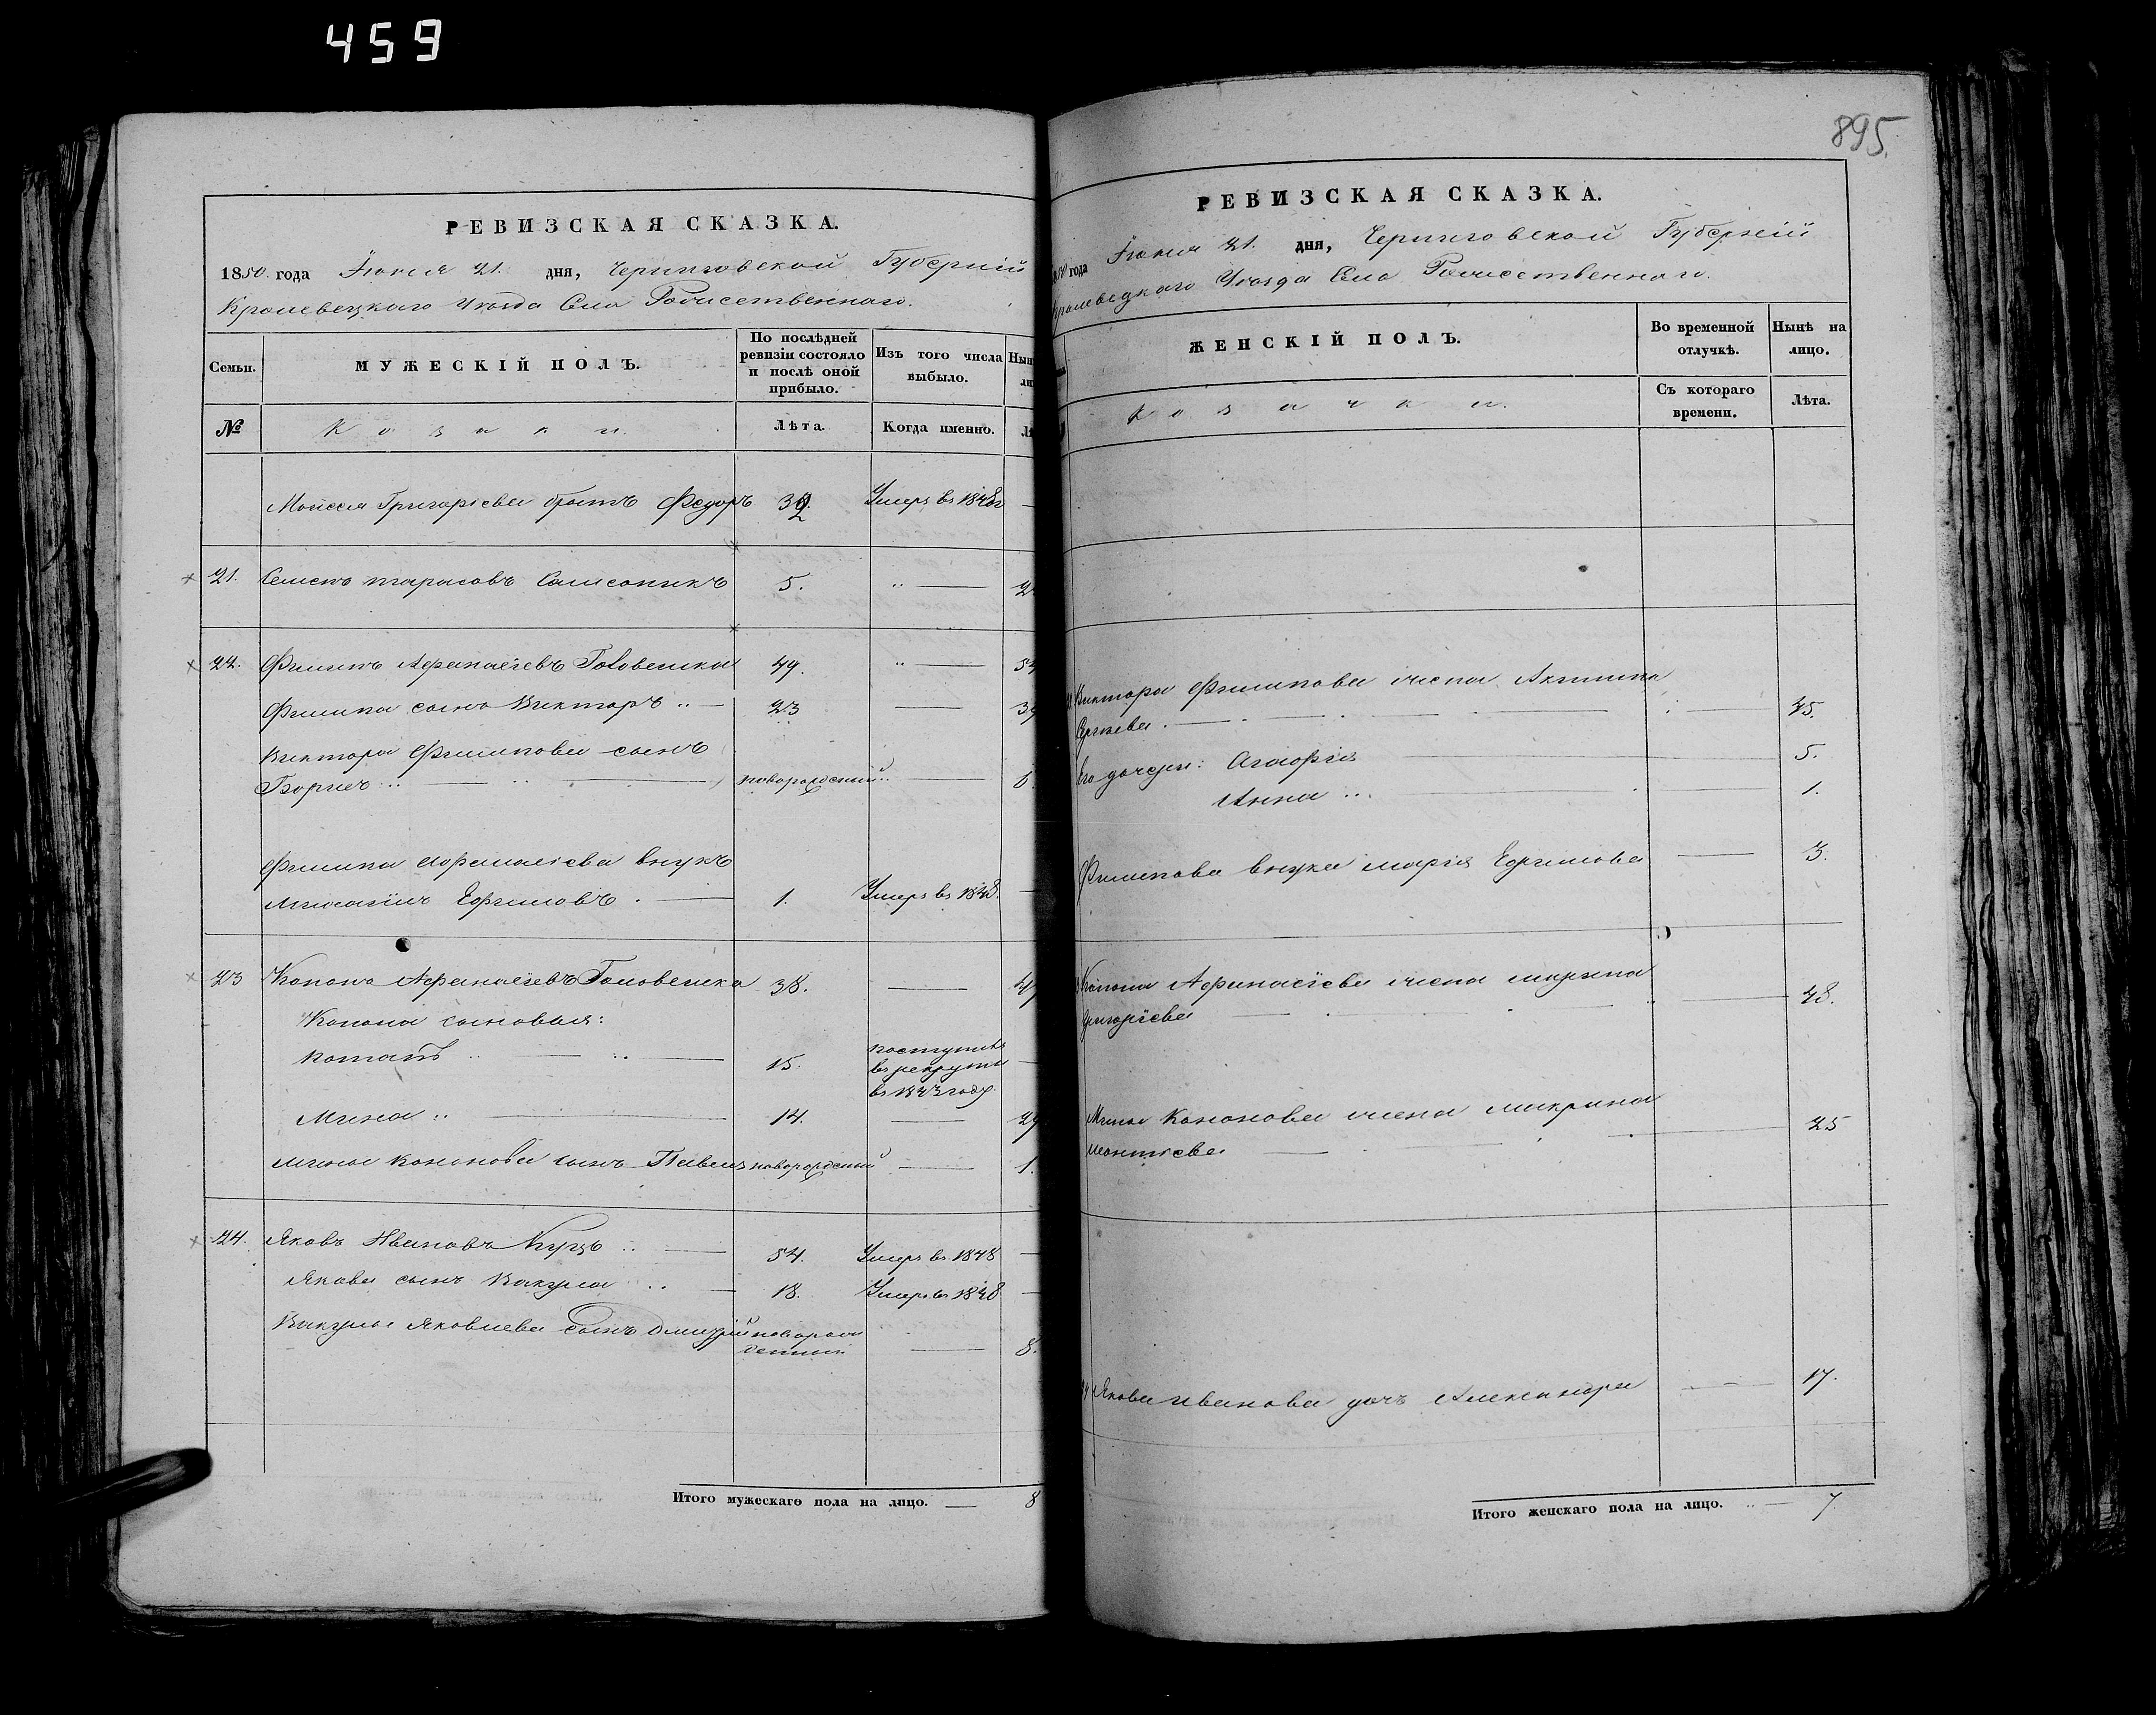 459
РЕВИЗСКАЯ СКАЗКА.
1850 года Іюня 21. дня, Черниговской Губерніи
Кролевецкаго Уѣзда Села Рождественнаго.
Семьи.
МУЖЕСКІЙ ПОЛЪ.
По послѣдней ревизіи состояло и послѣ оной прибыло.
Изъ того числа выбыло.
№
Козаки.
Лѣта.
Когда именно.
Моисея Григоріева братъ Федоръ Умеръ въ 1848г
21. тарасовъ 5. "
22. Филипъ Афанасіевъ Головешка 49. "
Филипа сынъ Викторъ 23
Виктора Филипова сынъ
Борисъ новорожденный 6.
Филипа Афанасіева внукъ
Ефимовъ 1. Умеръ въ 1848.
23 Кононъ Афанасіевъ Головешка 38.
Конона сыновья:
Потапъ 15. поступилъ
въ рекруты
въ 1843 году.
Мина 14. 29
Мины Кононова сынъ Павелъ новорожденный 1.
24. Яковъ Ивановъ 54. Умеръ въ 1848
Якова сынъ Вакула 18. Умеръ въ 1848
Вакулы Яковлева сынъ Дмитрій новорож
денный 8.
Итого мужескаго пола на лицо. 8
895.
РЕВИЗСКАЯ СКАЗКА.
1850 года Іюня 21. дня, Черниговской Губерніи
Кролевецкаго Уѣзда Села Рождественнаго.
ЖЕНСКІЙ ПОЛЪ.
Во временной отлучкѣ.
Нынѣ на лицо.
Козачки.
Съ котораго времени.
Лѣта.
Виктора Филипова жена Акилина
Сергѣева 45.
Его дочери: Агафія 5.
Анна 1.
Филипова внука марія Ефимова 3.
Конона Афанасіева жена марина
Григоріева 48.
Мины Кононова жена макрина
леонтіева 25
Якова иванова дочь Александра 17.
Итого женскаго пола на лицо. 7